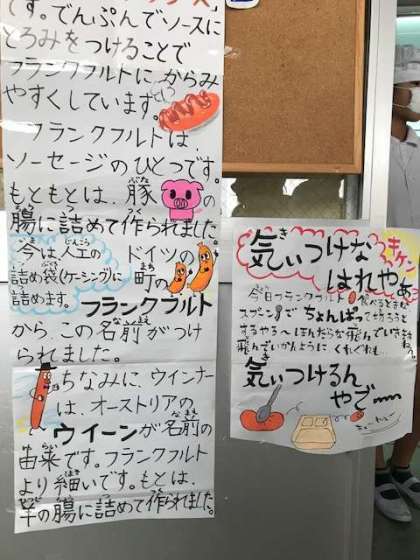 です。でんぷんでソースに
とろみをつけることで
フランクフルトに、からみ
やすくしています。
フランクフルトは、
ソーセージのひとつです。
もともとは、豚の
ぶた
腸に詰めて作られました。
今は人工の
じんこう
詰め袋(ケーシング)に
詰めます。
ドイツの
町の
まち
フランクフルト
から、この名前がつけ
なまえ
られました。
ちなみに、ウインナー
は、オーストリアの
ウイーンが名前の
なまえ
由来です。フランクフルト
ゆらい
より細いです。もとは、
羊の腸に詰めて作られました。
キケン
気ぃつけな
き
はれやぁ
今日フランクフルト
スプーンで ちょんぱって切ろうと
するやろ〜ほんだらな飛んでいきますねん。
飛んでいかんように くれぐれも…
気ぃつけるん
き
やで〜